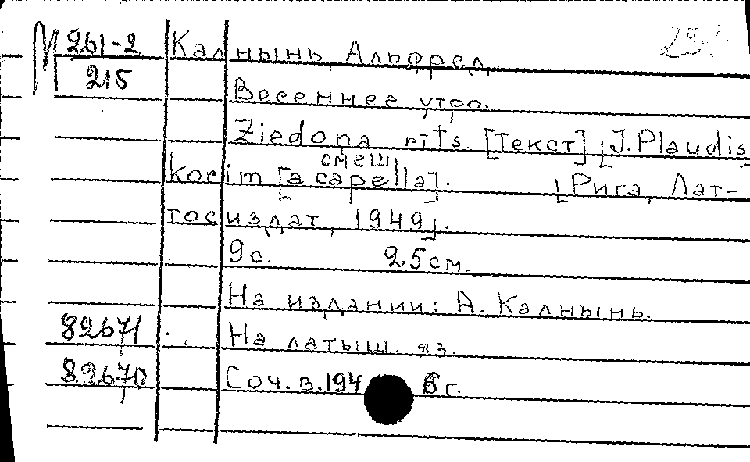 М 261-2
215
Калнынь, Альфред
Весеннее утро.
Ziedoņa rīts. [Текст] [J. Plaudis]
смеш.
Korim [a capella]. [Рига, Лат-
госиздат, 1949].
9с. 25см.
На издании: А. Калнынь.
На латыш. яз.
Соч. в 194 6 г.
82671
82670